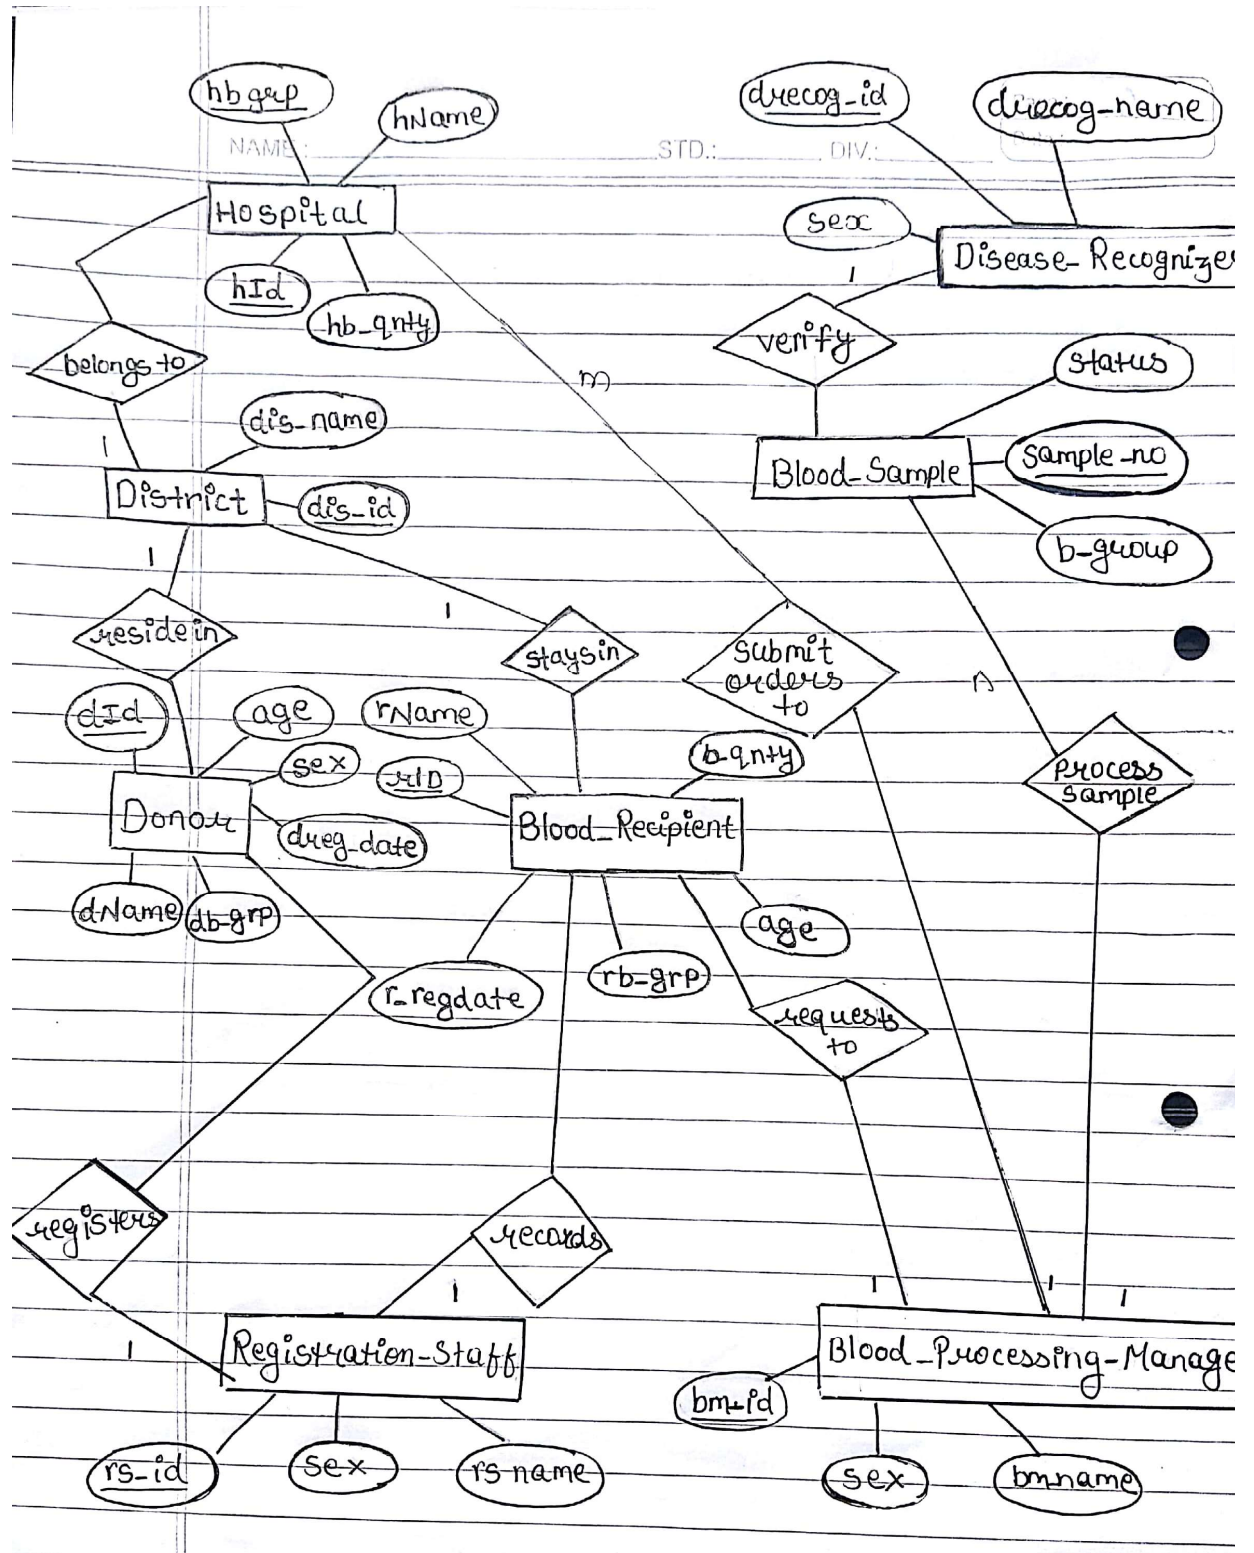 hbgrp
hName
drecog_id
drecog-name
NAME:
STD.:
DIV.:
Hospital
sex
Disease_Recognizer
1
hId
hb_qnty
verify
belongs to
m
status
dis_name
1
Blood_Sample
Sample_no
District
dis_id
b-group
1
1
reside in
stays in
Submit
orders
to
n
dId
age
rName
sex
rID
b-qnty
process
sample
Donor
dreg_date
Blood_Recipient
dName
db-grp
age
rb-grp
r_regdate
requests
to
registers
records
1
1
1
1
1
Registration-Staff
Blood_Processing-Manage
bm-id
rs-id
sex
rs name
sex
bm-name